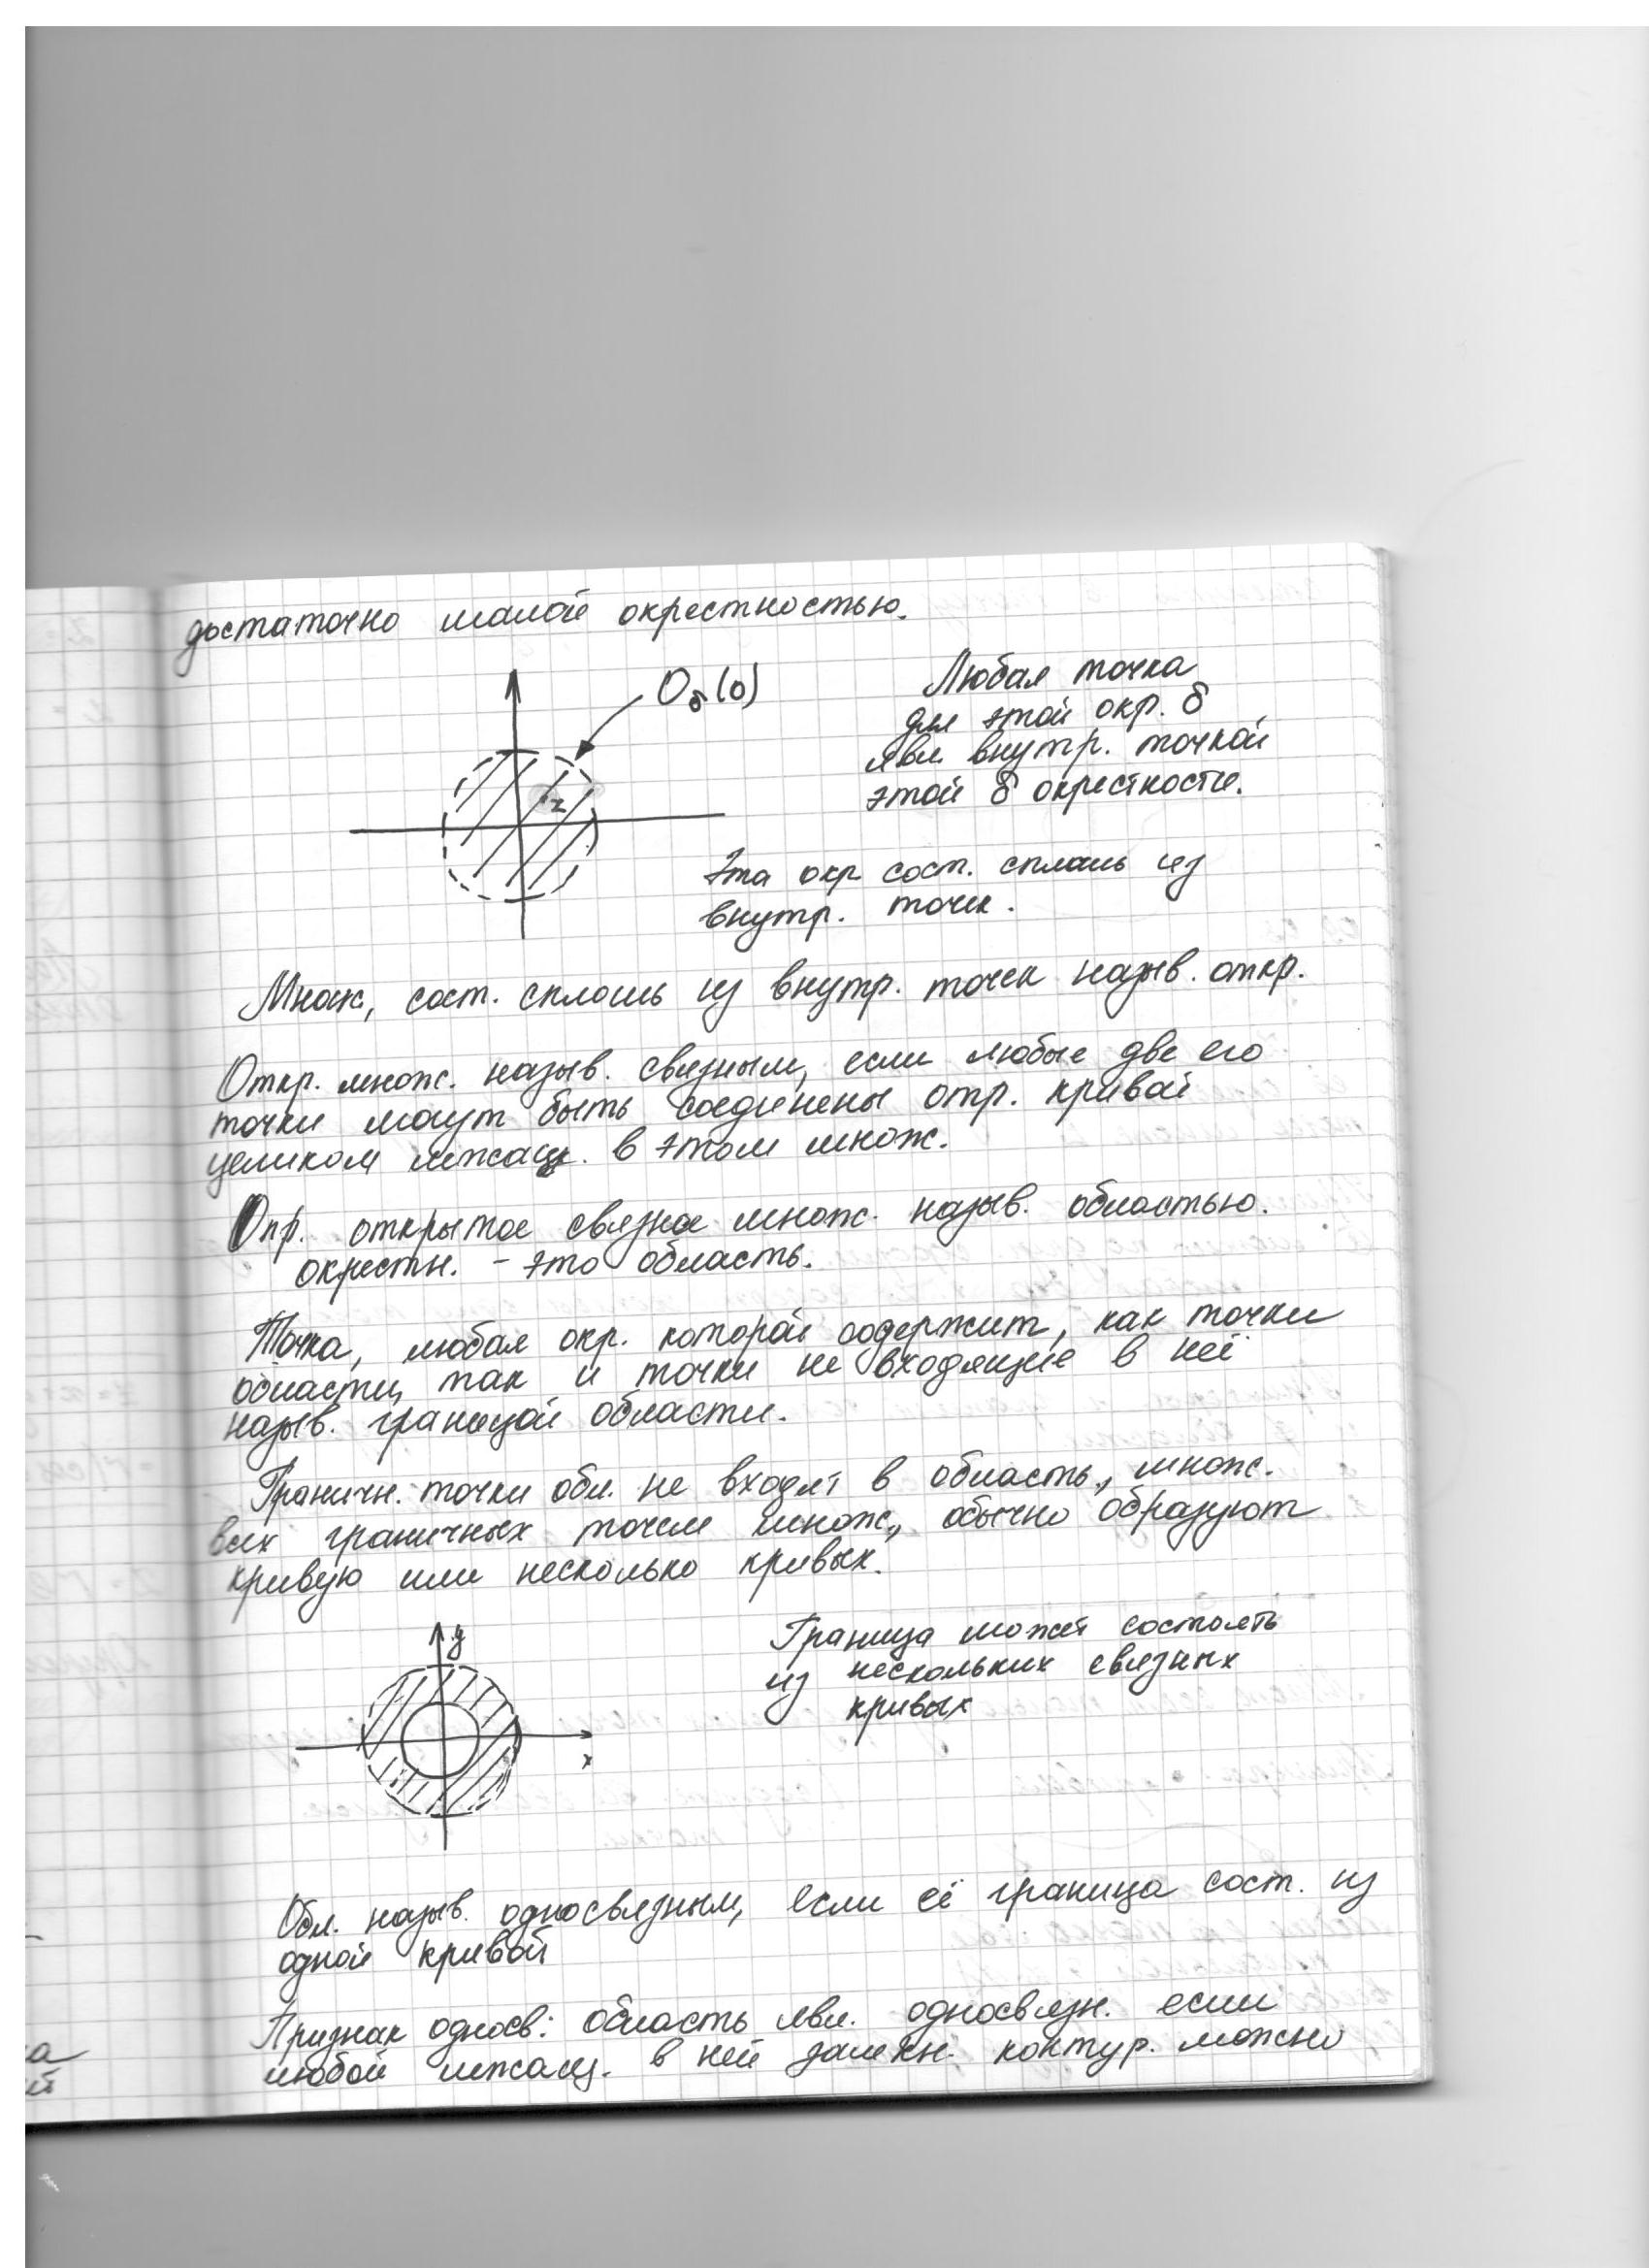 достаточно малой окрестностью.
O_δ(0)
z
Любая точка
для этой окр. δ
явл. внутр. точкой
этой δ окрестности.
Эта окр сост. сплошь из
внутр. точек.
Множ, сост. сплошь из внутр. точек назыв. откр.
Откр. множ. назыв. связным, если любые две его
точки могут быть соединены отр. кривой
целиком лежащ. в этом множ.
Опр. открытое связное множ. назыв. областью.
окрестн. - это область.
Точка, любая окр. которой содержит, как точки
области, так и точки не входящие в неё
назыв. границой области.
Граничн. точки обл. не входят в область, множ.
всех граничных точек множ., обычно образуют
кривую или несколько кривых.
y
x
Граница может состоять
из нескольких связных
кривых
Обл. назыв. односвязным, если её граница сост. из
одной кривой
Признак односв: область явл. односвязн. если
любой лежащ. в ней замкн. контур. можно